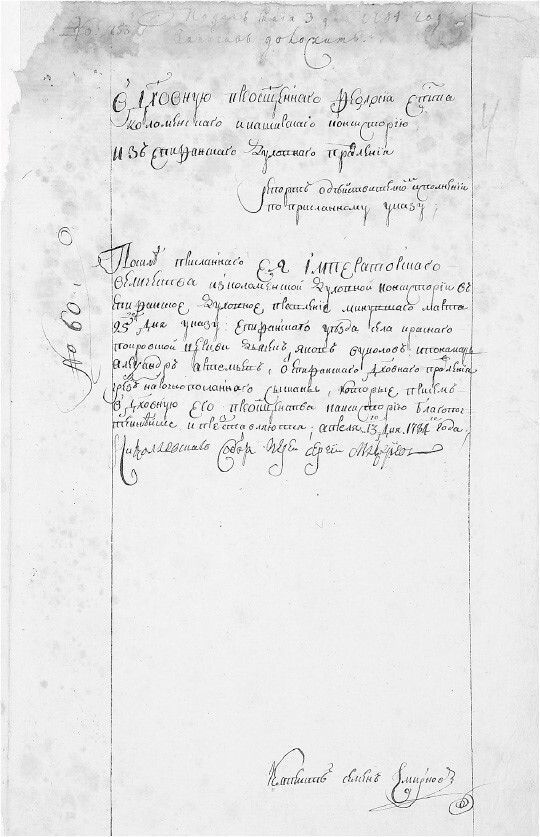 Подан маия 3 дн 1784 год
Записав доложить
В Духовную преосщеннаго Феодосия епспа
коломенскаго и кашискаго консисторию
Из Епифанскаго Духовнаго правления
Репорт объявително исполнении
по присланному указу;
По силе присланнаго Ея Императорскаго
величества из коломенской Духовной консистории в
Епифанское Духовное правление минувшаго марта
25 дня указу: Епифанскаго уезда села краснаго
покровской церкви дьячек Яков и пономарь
александр алексеев, в Епифанское духовное правление
чрез нарочнопосланнаго сысканы, которые при сем
в Духовную Его преосщенства консисторию благопо
чтеннейше и представляются; апреля 13 дня 1784 года
Николаевскаго Собора Иерей Сергий
Капеист семен Смирнов
No 60